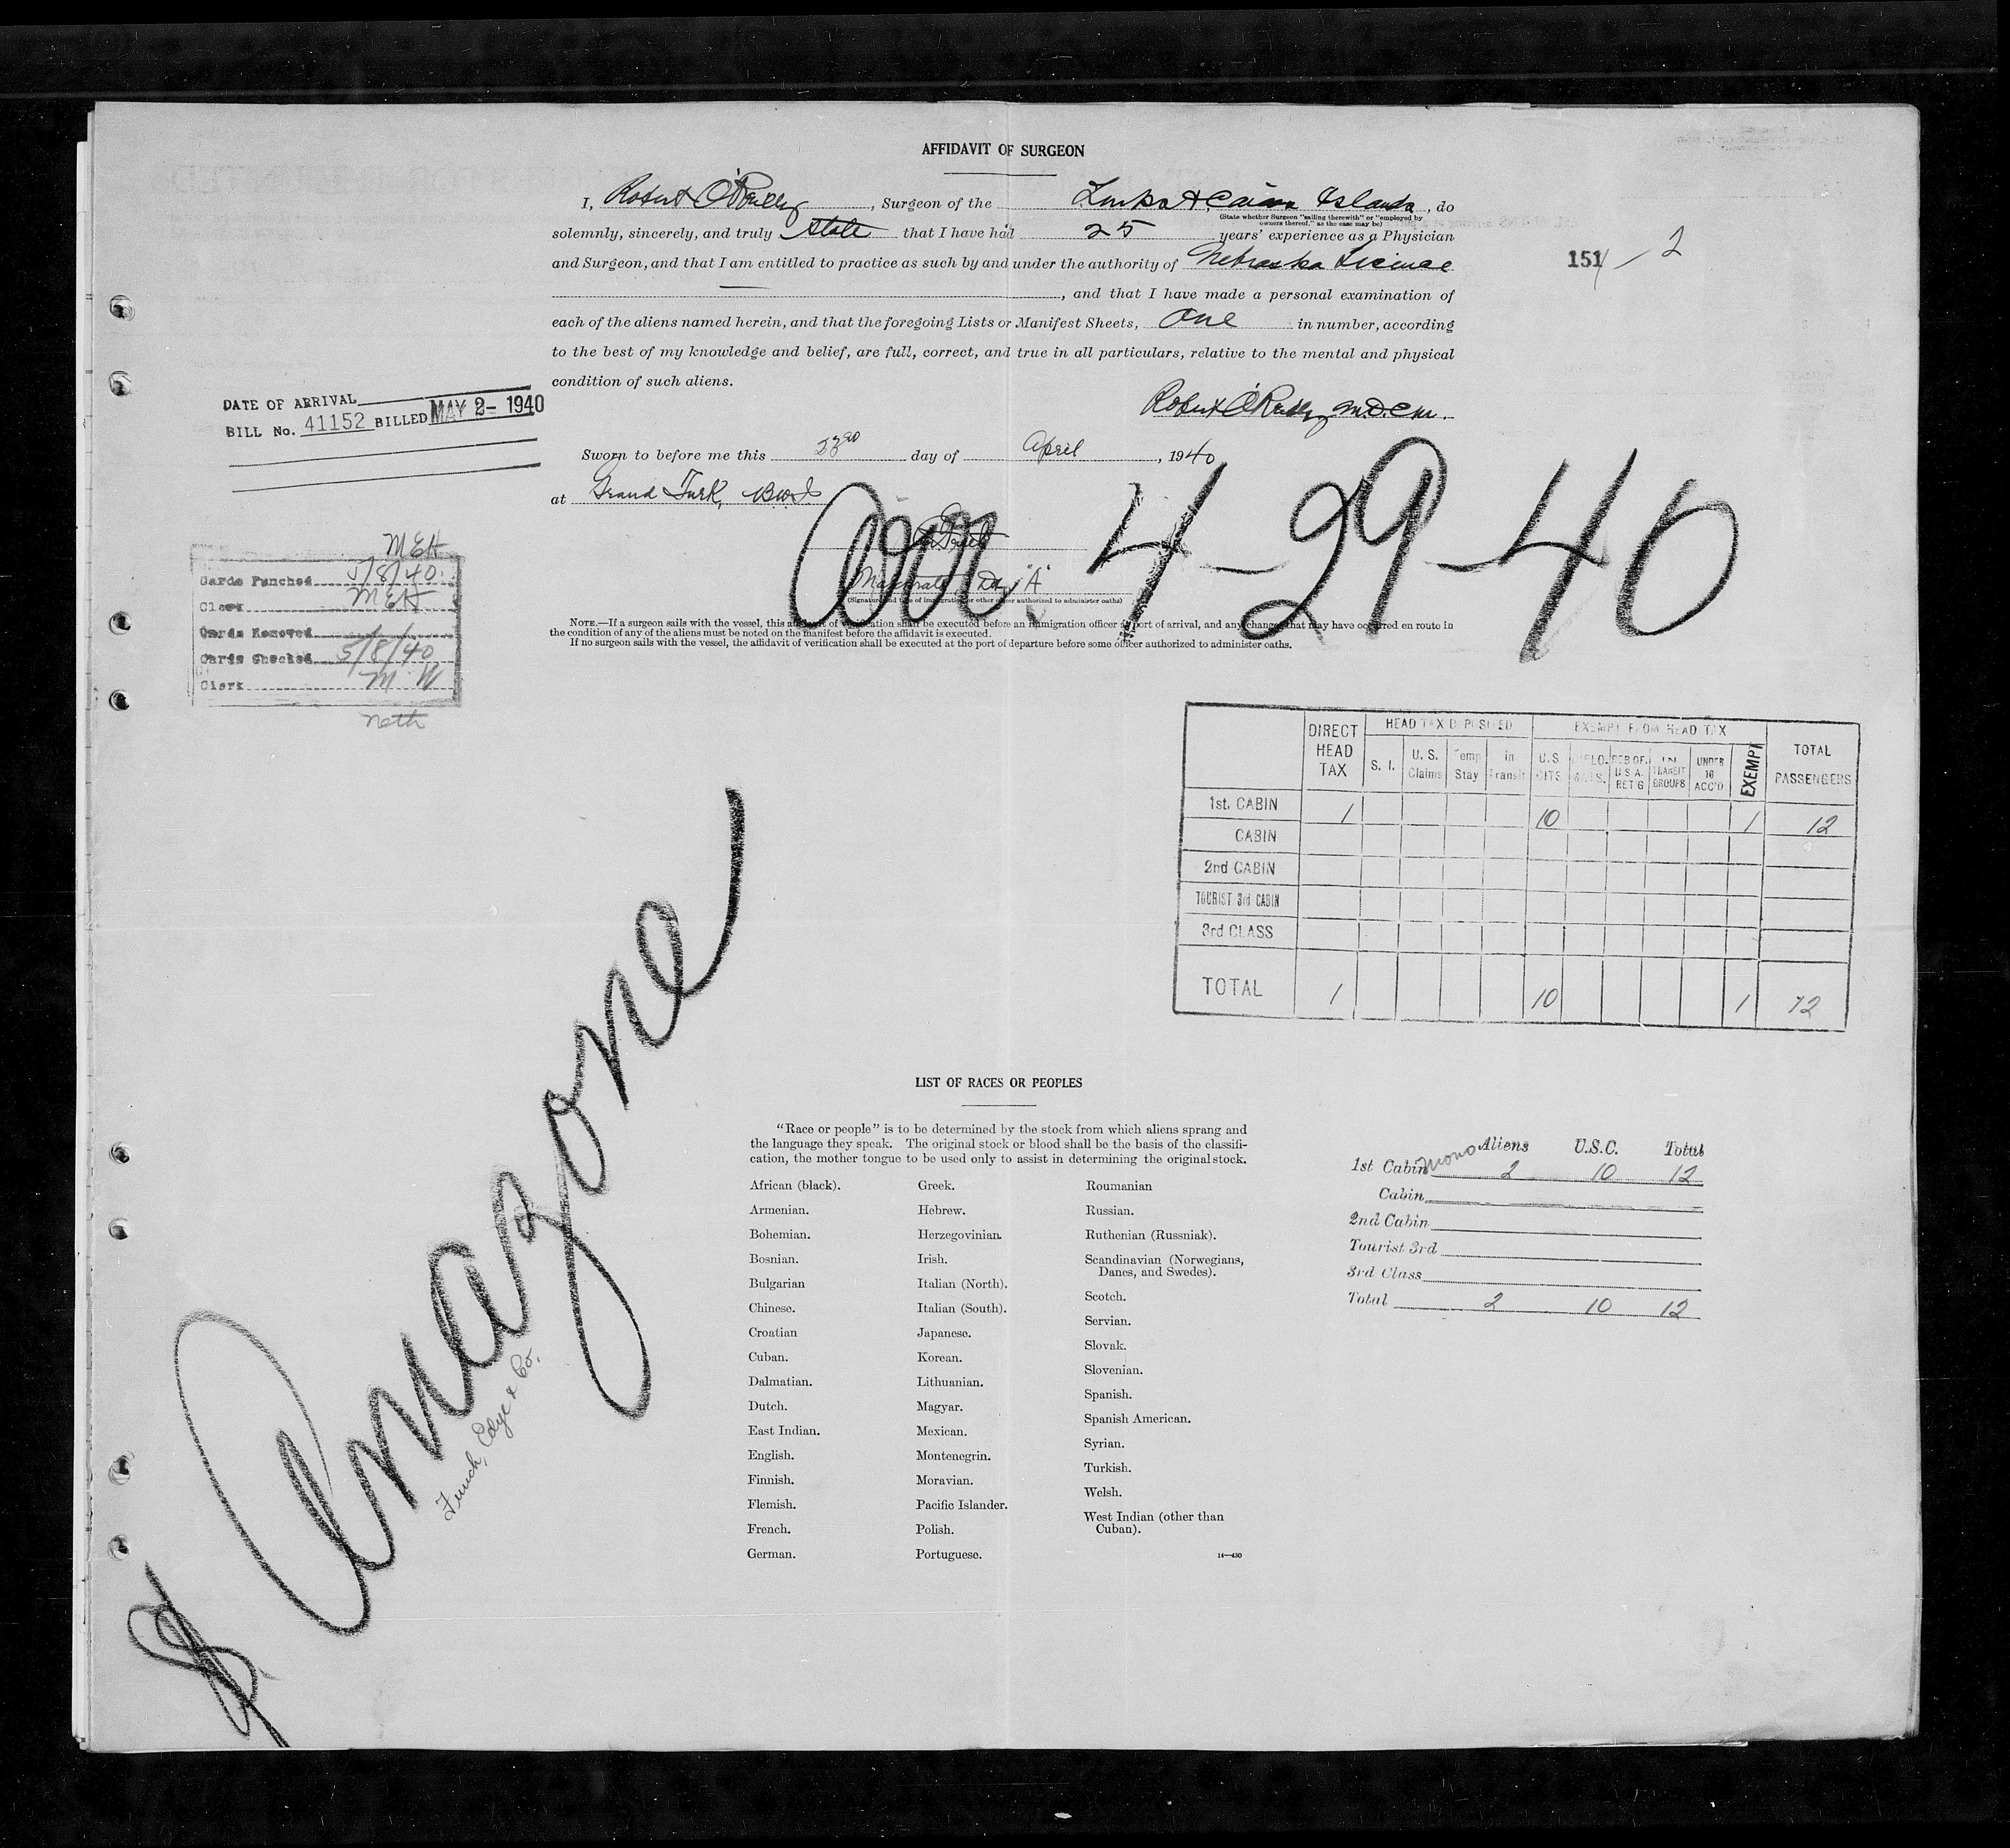 AFFIDAVIT OF SURGEON
I, Robert O'Reilly, Surgeon of the Turks & Caicos Islands, do
(State whether Surgeon "sailing therewith" or "employed by owners thereof," as the case may be)
solemnly, sincerely, and truly state that I have had 25 years' experience as a Physician
and Surgeon, and that I am entitled to practice as such by and under the authority of Nebraska License
, and that I have made a personal examination of
each of the aliens named herein, and that the foregoing Lists or Manifest Sheets, One in number, according
to the best of my knowledge and belief, are full, correct, and true in all particulars, relative to the mental and physical
condition of such aliens.
151 / 2
Robert O'Reilly M.D.C.M.
DATE OF ARRIVAL
BILL No. 41152 BILLED MAY 2- 1940
Sworn to before me this 23rd day of April, 1940
at Grand Turk, B.W.I.
Arr 4-29-40
Magistrate, "A"
(Signature and title of immigration or other officer authorized to administer oaths)
NOTE.—If a surgeon sails with the vessel, this affidavit of verification shall be executed before an immigration officer at port of arrival, and any changes that may have occurred en route in
the condition of any of the aliens must be noted on the manifest before the affidavit is executed.
If no surgeon sails with the vessel, the affidavit of verification shall be executed at the port of departure before some officer authorized to administer oaths.
MEH
Cards Punched 5/8/40
Clerk MEH
Cards Removed
Cards Checked 5/8/40
Clerk M W
Neth
DIRECT HEAD TAX HEAD TAX DEPOSITED EXEMPT FROM HEAD TAX TOTAL PASSENGERS
S. I. U. S. Claims Temp Stay In Transit U.S CITS DIPLOMATS. RES OF U.S.A. RET'G IN TRANSIT GROUPS UNDER 16 ACC'D EXEMPT
1st. CABIN 1 10 1 12
CABIN
2nd CABIN
TOURIST 3rd CABIN
3rd CLASS
TOTAL 1 10 1 12
SS Amazone
Funch, Edye & Co.
LIST OF RACES OR PEOPLES
"Race or people" is to be determined by the stock from which aliens sprang and
the language they speak. The original stock or blood shall be the basis of the classifi-
cation, the mother tongue to be used only to assist in determining the original stock.
African (black).
Armenian.
Bohemian.
Bosnian.
Bulgarian
Chinese.
Croatian
Cuban.
Dalmatian.
Dutch.
East Indian.
English.
Finnish.
Flemish.
French.
German.
Greek.
Hebrew.
Herzegovinian.
Irish.
Italian (North).
Italian (South).
Japanese.
Korean.
Lithuanian.
Magyar.
Mexican.
Montenegrin.
Moravian.
Pacific Islander.
Polish.
Portuguese.
Roumanian
Russian.
Ruthenian (Russniak).
Scandinavian (Norwegians,
Danes, and Swedes).
Scotch.
Servian.
Slovak.
Slovenian.
Spanish.
Spanish American.
Syrian.
Turkish.
Welsh.
West Indian (other than
Cuban).
14—430
Aliens U.S.C. Total
1st Cabin mono 2 10 12
Cabin
2nd Cabin
Tourist 3rd
3rd Class
Total 2 10 12